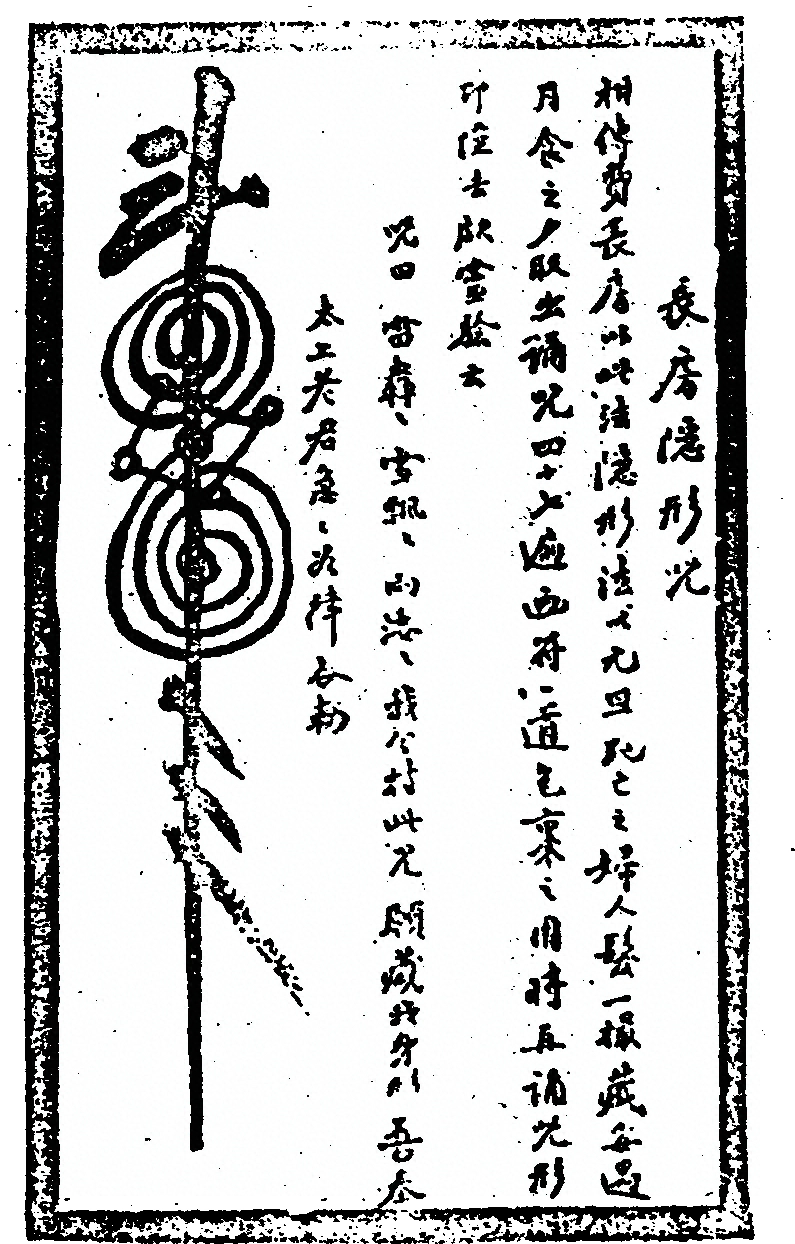 長房隱形咒
相傳費長房以此法隱形法以元旦死亡之婦人髮一撮藏每遇
月食之夕取出誦咒四十九遍画符一道包裹之用時再誦咒形
即隱去頗靈驗云
咒曰 雷轟〻雪飄〻雨濃〻我今持此咒願藏我身形吾奉
太上老君急〻如律令勅